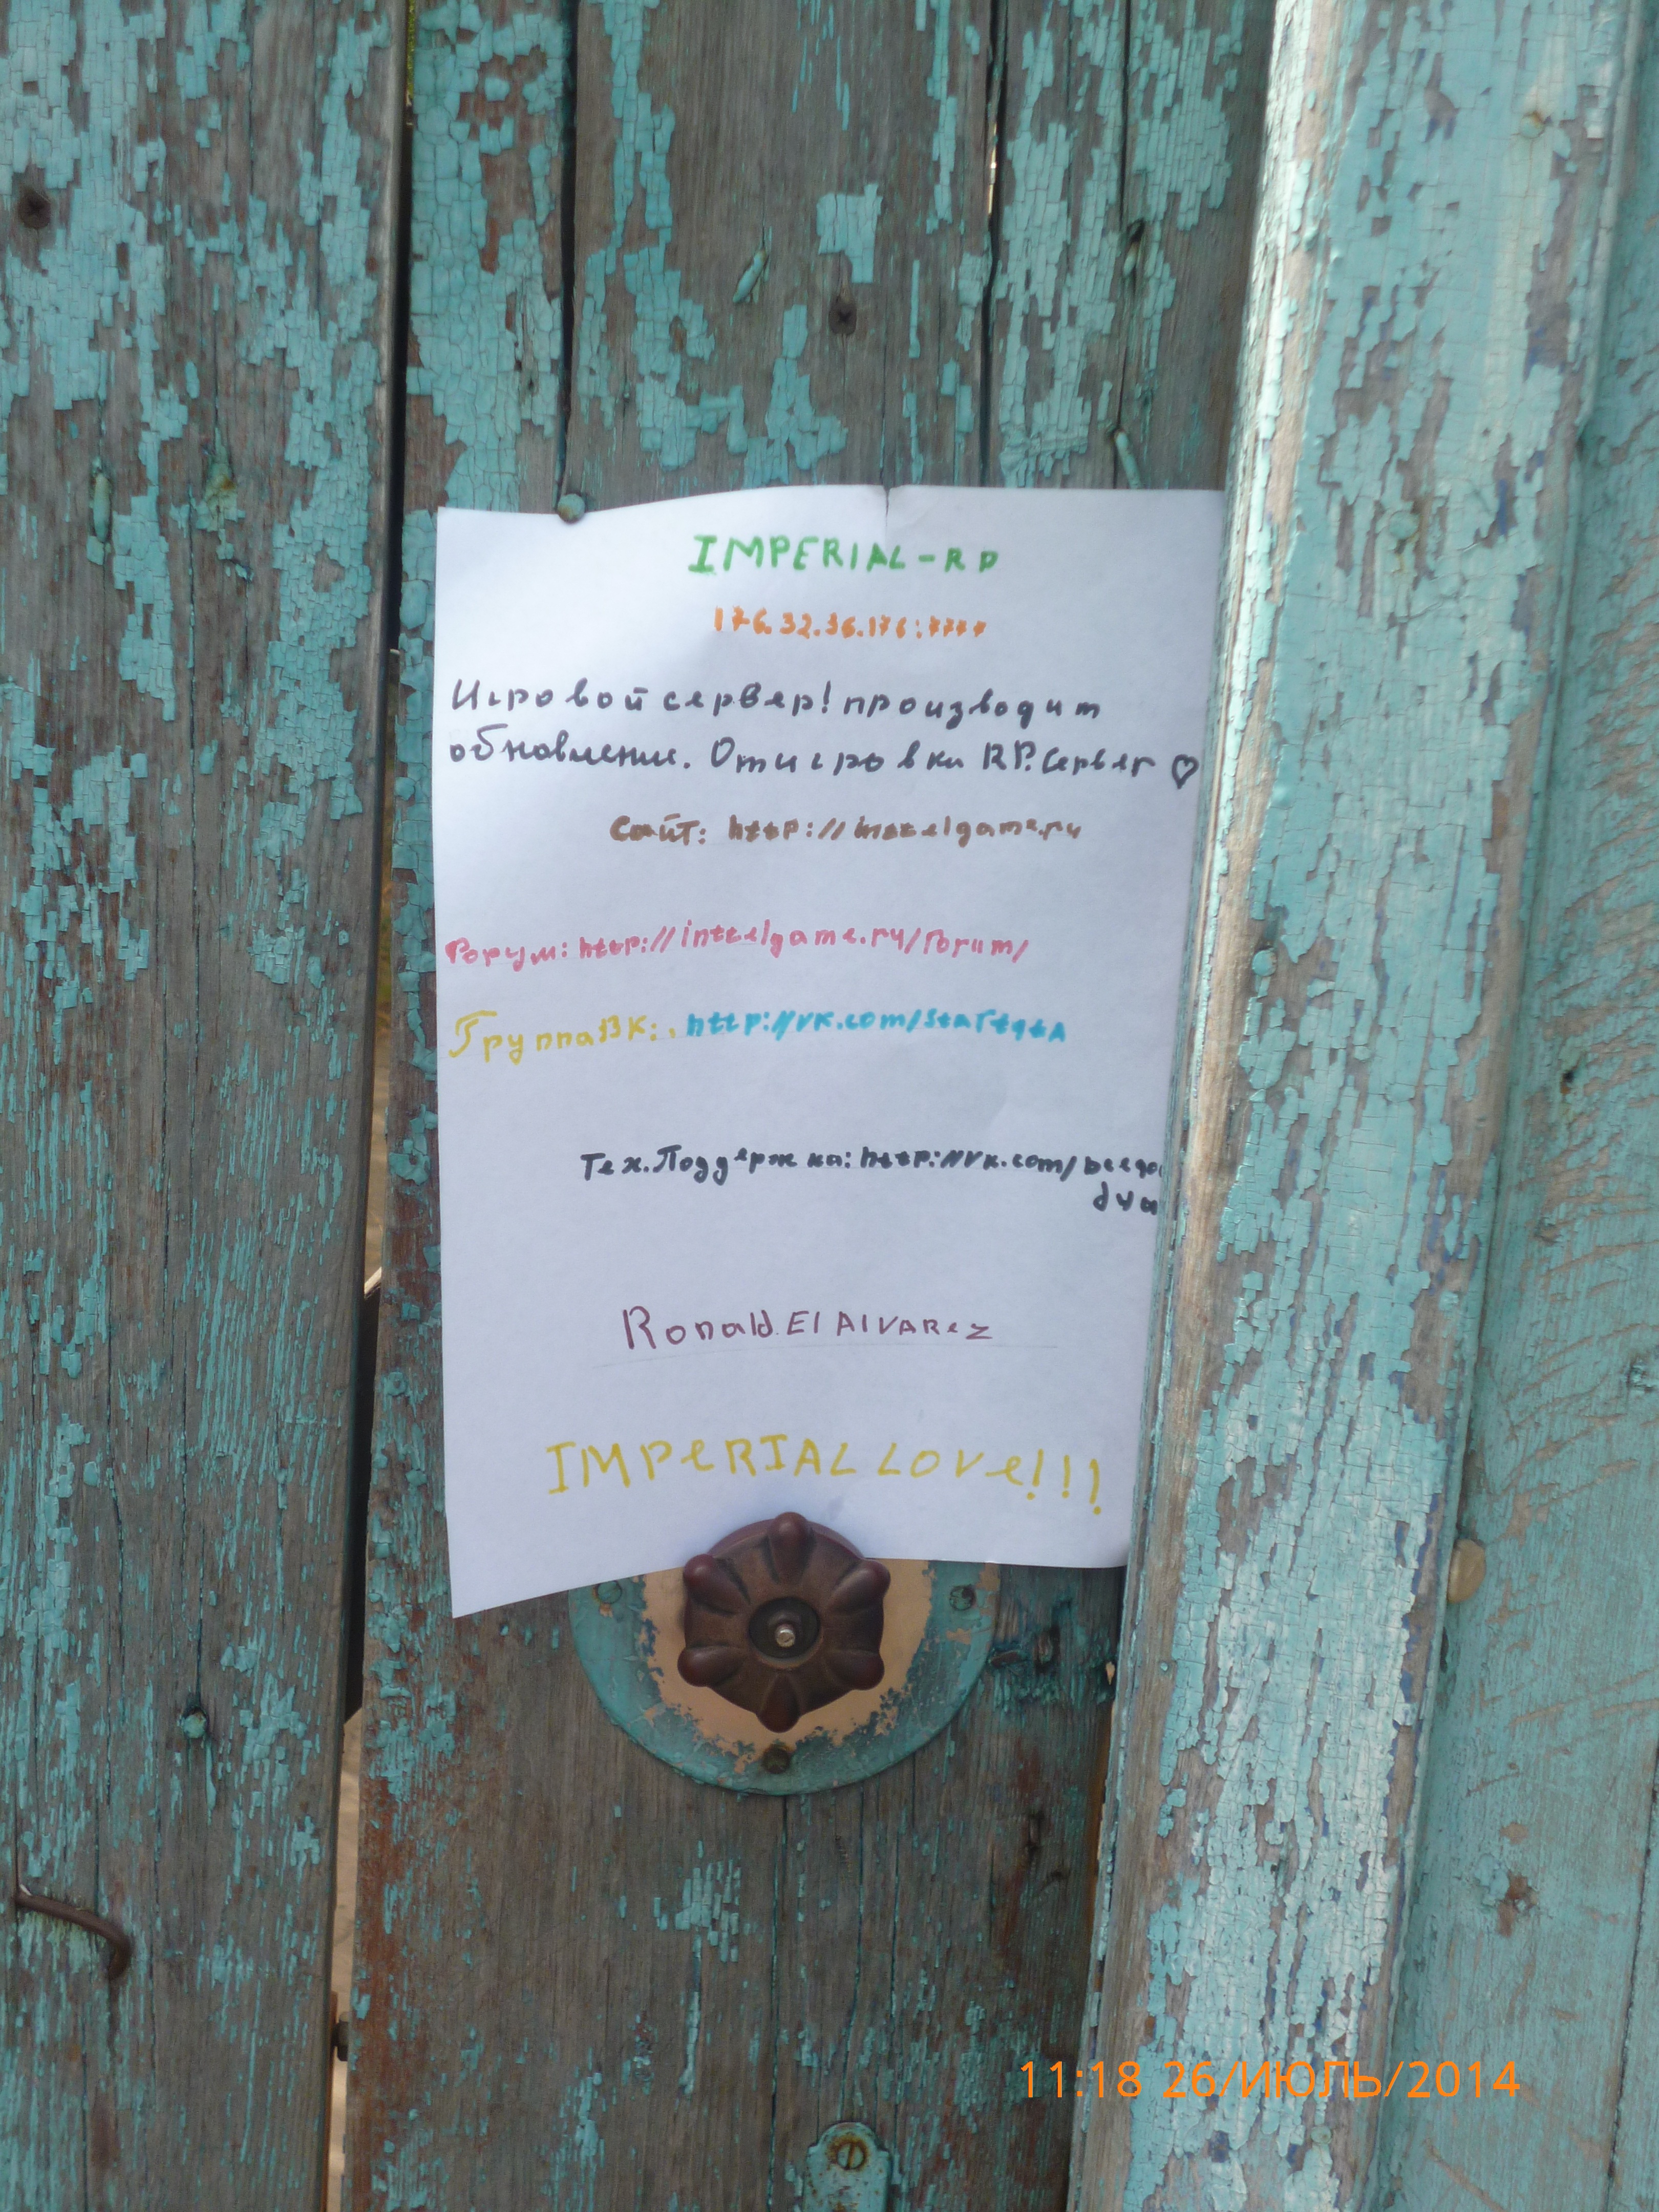 IMPERIAL-RP
176.32.36.176:7777
Игровой сервер! производит
обновление. Отигровки RP.Сервер ♡
Сайт: http://inttelgame.ru
Форум: http://inttelgame.ru/forum/
Группа ВК: http://vk.com/
Тех.Поддержка: http://vk.com/
Ronald.El Alvarez
IMPeRIAL LOVe!!!
11:18 26/ИЮЛЬ/2014